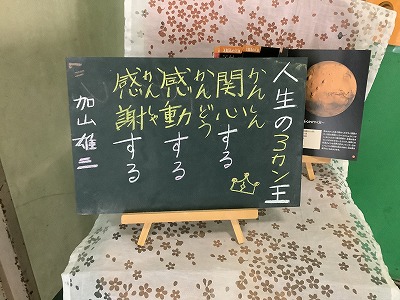 人生の3カン王
かんしん
関心する
かんどう
感動する
かんしゃ
感謝する
加山雄三